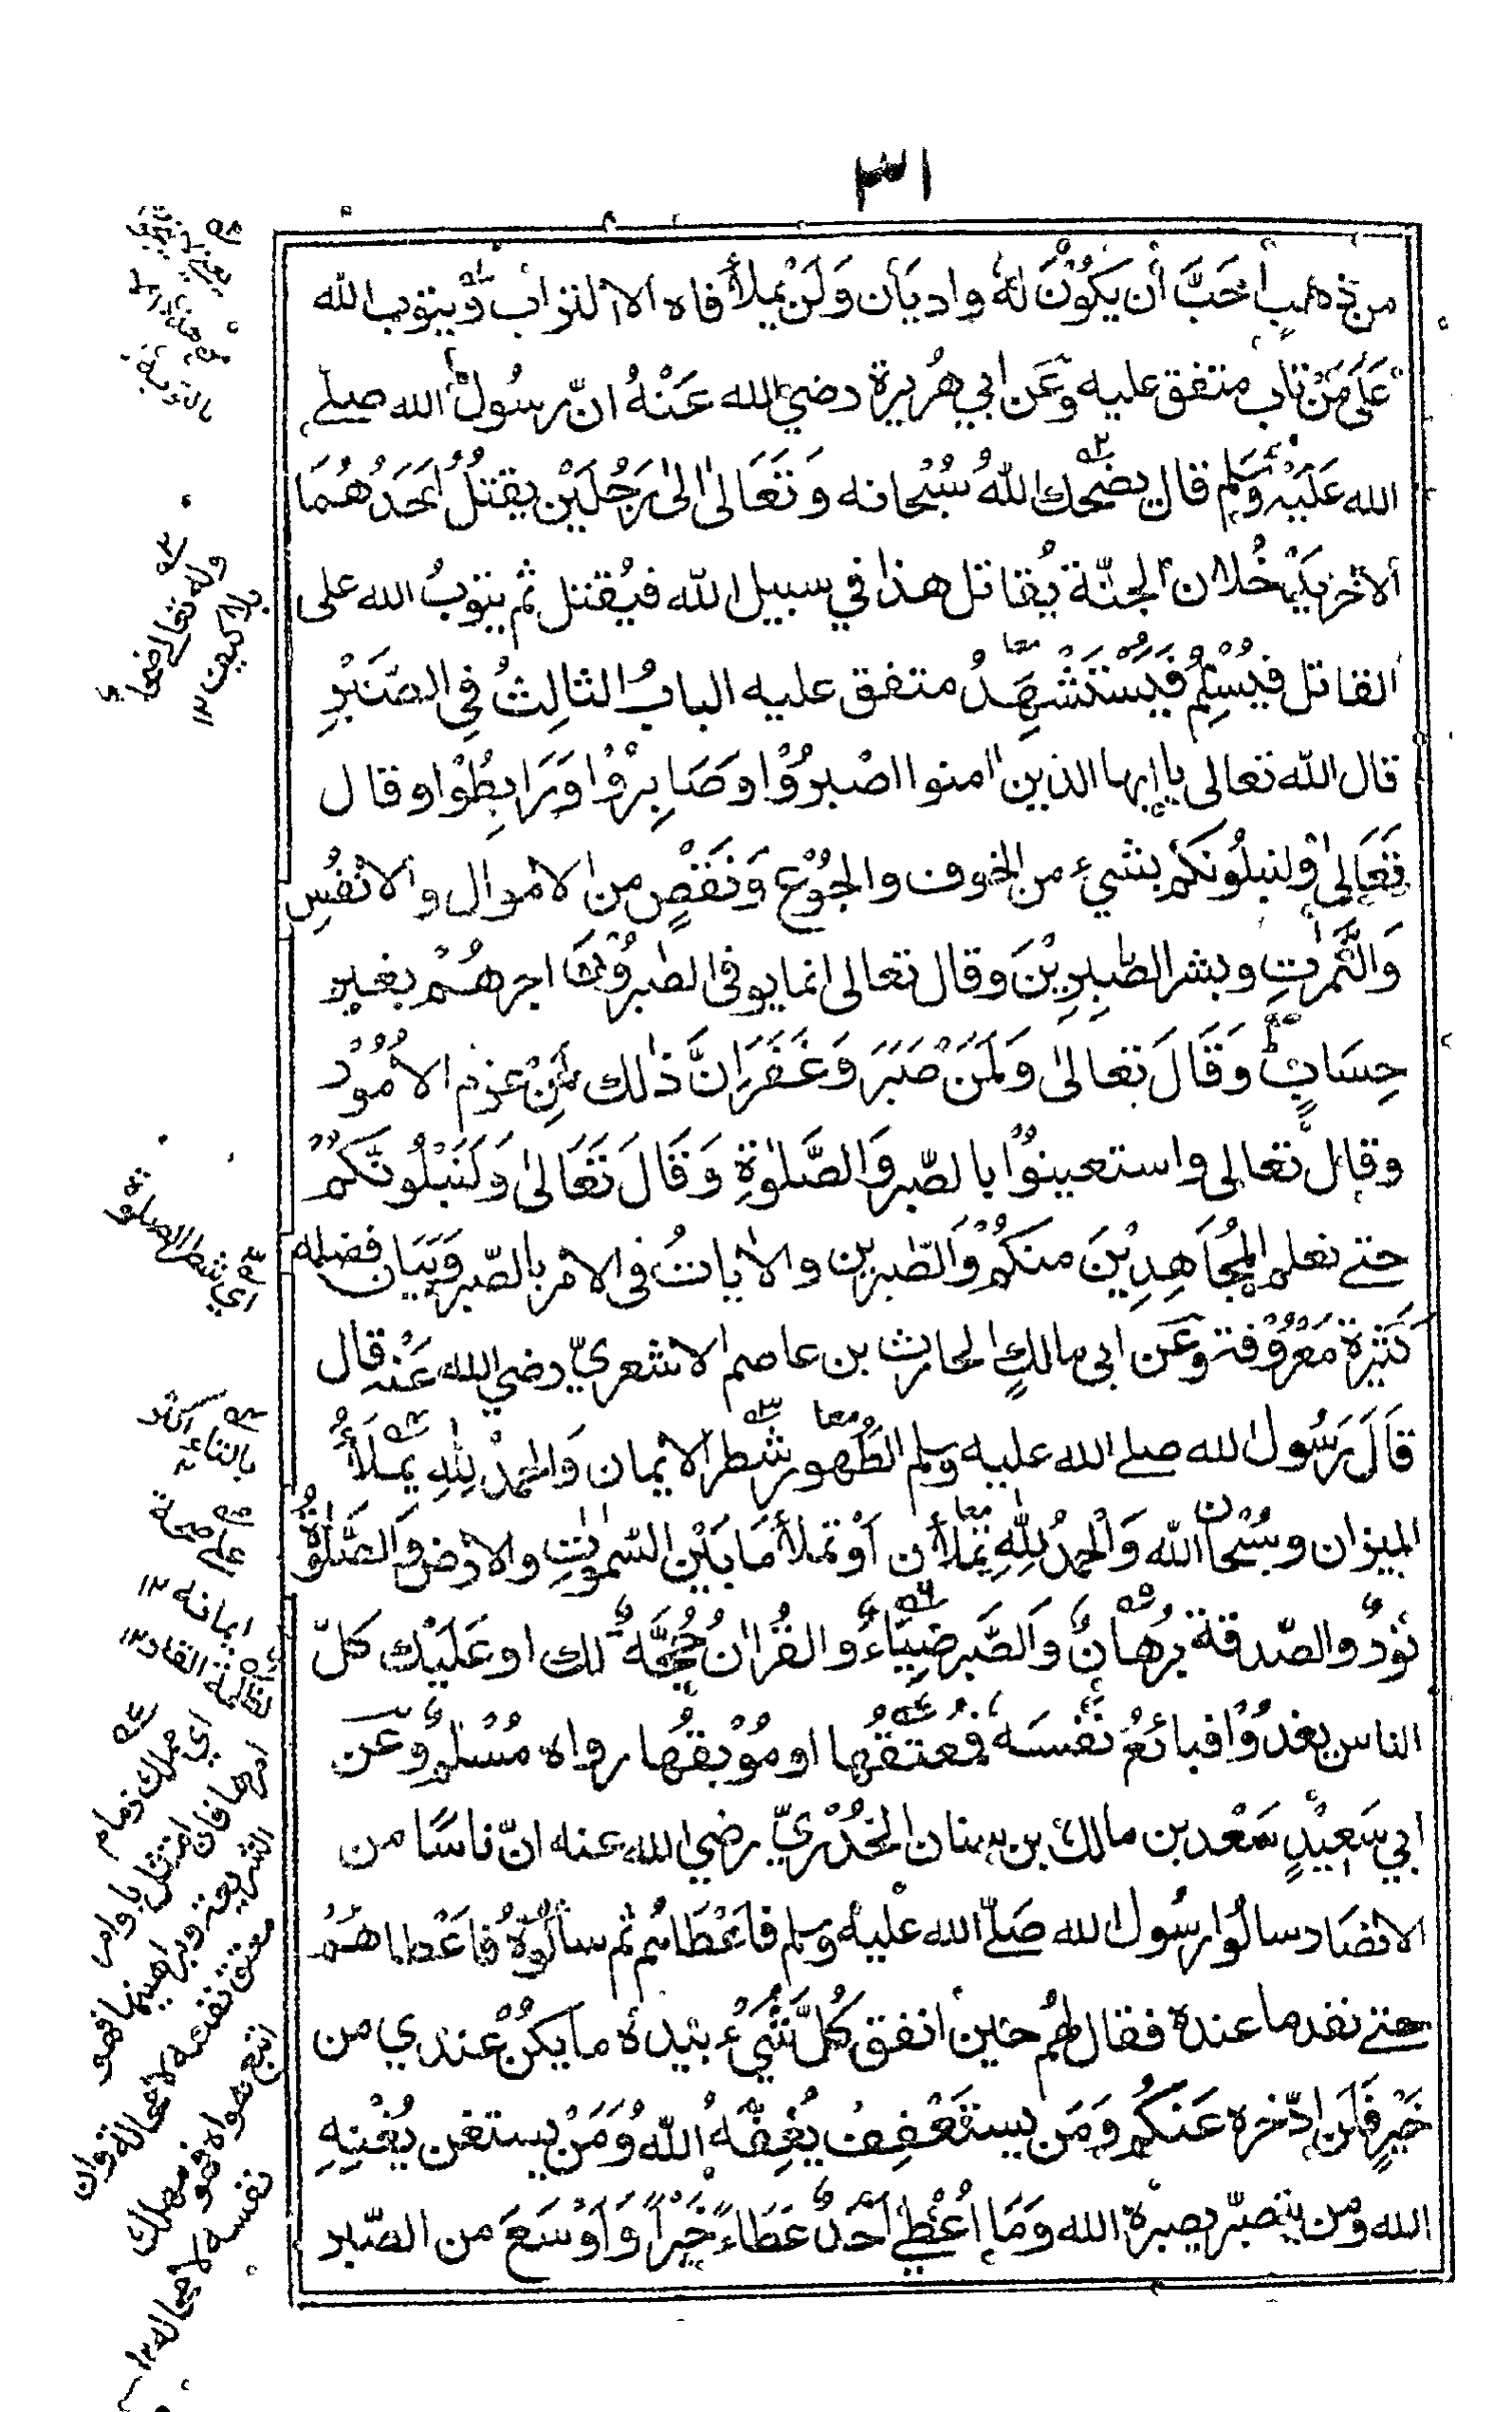 ٣١
من ذهب احَبَّ أن يَكُوْنَ لهُ واديَان وَلَنْ يملأَ فاه الا التراب وَيتوب الله
عَلَى مَنْ تاب متفق عليه وعَن ابي هُريرة رضي الله عَنْهُ انّ رسُول الله صلے
الله عَلَيْه وَسَلم قال يضحك اللهُ سُبْحانه وَتَعَالىٰ الىٰ رَجُلَيْن يقتلُ احَدُهُمَا
ألاخر يَدْخُلان الجنّة يُقاتل هذا في سبيل الله فيُقتل ثم يتوبُ الله على
القاتل فيُسْلِمُ فيُسْتَشْهَدُ متفق عليه البابُ الثالِثُ فِي الصَّبْرِ
قال الله تعالى يا ايها الذين امنوا اصْبرُوْا وصَابِرُوْا وَرَابِطُوْا وقال
تَعَالىٰ ولنبلُونكُم بشيءٍ من الخوف والجُوْع وَنَقْصٍ من الاموال والانفُسِ
وَالثَّمَرٰتِ وبشر الصّٰبِرِيْنَ وقال تعالى انما يوفى الصٰبرُوْنَ اجرهُمْ بغير
حِسَابٍ وَقَالَ تعالىٰ وَلَمَنْ صَبَرَ وَغَفَرَ اِنَّ ذٰلك لَمِنْ عزم الاُمُوْر
وقال تعالى واستعينوْا بالصّبر وَالصَّلوٰةِ وَقَالَ تَعَالىٰ وَلَنَبْلُوَنَّكُمْ
حتے نعلم المُجَاهِدِيْنَ منكُمْ وَالصّٰبرين والاٰياتُ فى الامر بالصّبر وَبَيَان فضله
كَثِيْرَة مَعْرُوْفة وعَن ابى مالكٍ الحارث بن عاصم الاشعريّ رضي الله عَنْه قال
قَالَ رَسُول الله صلے الله عليه وسلم الطُهور شطر الايمان وَالحمْدُ لِلّٰهِ يملَأُ
الميزان وسُبْحان الله وَالْحمدُ لِلّٰهِ تملأن اَوْ تملأ مَا بَيْن السّمٰوٰتِ والارض وَالصَّلٰوةُ
نوْرٌ والصّدقة بُرْهانٌ وَالصَّبر ضِيَاءٌ والقُراٰنُ حُجَّةٌ لك او عَلَيْك كلّ
الناس يغدُوْا فبائعُ نَفْسَه فمُعتقُها او مُوْبقُها رواه مُسْلمٌ وعَن
ابي سَعِيْدٍ سَعْد بن مالك بن سنان الخُدْريّ رضي الله عنه انّ ناسًا من
الانصَار سالُوا رسُول الله صَلّے الله عليْه وسلم فاَعْطَاهُم ثم سألُوْهُ فاَعْطاهُمْ
حتے نفد ما عنده فقال لهُم حيْن انفق كُلَّ شَيْءٍ بيَده ما يكنْ عندي من
خَيْرٍ فَلَن ادّخره عَنكُم وَمَن يستَعْفِف يُعِفَّهُ اللهُ وَمَنْ يستغن يُغْنِهِ
الله ومن يتصبّر يصبّرهُ الله وَمَا اُعْطِيَ اَحَدٌ عَطَاءً خَيْراً وَاَوْسَعَ من الصّبر
بالتوبة
بلا كيف ١٢
اي شطر الصلوة
بالتاء
ايمانه ١٢
اي ملك زمام
امرها فان امتثل باوامر
الشريعة ونواهيها فهو
معتق نفسه لا محالة وان
اتبع هواه فهو مهلك
نفسه لا محاله ١٢